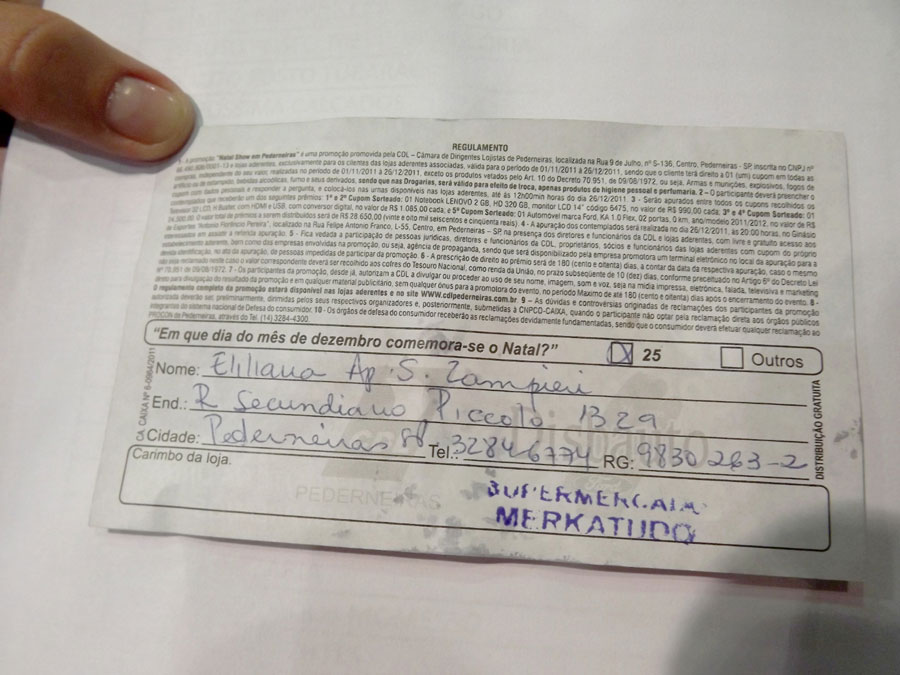 REGULAMENTO
1 - A promoção "Natal Show em Pederneiras" é uma promoção promovida pela CDL – Câmara de Dirigentes Lojistas de Pederneiras, localizada na Rua 9 de Julho, nº S-136, Centro, Pederneiras - SP, inscrita no CNPJ nº
e lojas aderentes, exclusivamente para os clientes das lojas aderentes associadas, válida para o período de 01/11/2011 à 26/12/2011, sendo que o cliente terá direito a 01 (um) cupom em todas as
compras, independente do seu valor, realizadas no período de 01/11/2011 a 26/12/2011, exceto os produtos vetados pelo Art. 10 do Decreto 70.951, de 09/08/1972, ou seja, Armas e munições, explosivos, fogos de
artifício ou de estampido, bebidas alcoólicas, fumo e seus derivados, sendo que nas Drogarias, será válido para efeito de troca, apenas produtos de higiene pessoal e perfumaria. 2 – O participante deverá preencher o
cupom com dados pessoais e responder a pergunta, e colocá-los nas urnas disponíveis nas lojas aderentes, até às 12h00min horas do dia 26/12/2011. 3 - Serão apurados entre todos os cupons recolhidos os
contemplados que receberão um dos seguintes prêmios: 1º e 2º Cupom Sorteado: 01 Notebook LENOVO 2 GB, HD 320 GB, monitor LCD 14" código 6475, no valor de R$ 990,00 cada, 3º e 4º Cupom Sorteado: 01
com HDMI e USB, com conversor digital, no valor de R$ 1.085,00 cada, e 5º Cupom Sorteado: 01 Automóvel marca Ford, KA 1.0 Flex, 02 portas, 0 km, ano/modelo 2011/2012, no valor de R$
O valor total de prêmios a serem distribuídos será de R$ 28.650,00 (vinte e oito mil seiscentos e cinqüenta reais). 4 - A apuração dos contemplados será realizada no dia 26/12/2011, às 20:00 horas, no Ginásio
de Esportes "Antonio Florêncio Pereira", localizado na Rua Felipe Antonio Franco, L-55, Centro, em Pederneiras – SP, na presença dos diretores e funcionários da CDL e lojas aderentes, com livre e gratuito acesso aos
interessados em assistir a referida apuração. 5 - Fica vedada a participação de pessoas jurídicas, diretores e funcionários da CDL, proprietários, sócios e funcionários das lojas aderentes com cupom do próprio
estabelecimento aderente, bem como das empresas envolvidas na promoção, ou seja, agência de propaganda, sendo que será disponibilizado pela empresa promotora um terminal eletrônico no local da apuração para a
devida identificação, no ato da apuração, de pessoas impedidas de participar da promoção. 6 - A prescrição do direito ao prêmio será de 180 (cento e oitenta) dias, a contar da data da respectiva apuração, caso o mesmo
não seja reclamado neste caso o valor correspondente deverá ser recolhido aos cofres do Tesouro Nacional, como renda da União, no prazo subseqüente de 10 (dez) dias, conforme preceituado no Artigo 6º do Decreto Lei
nº 70.951 de 09/08/1972. 7 - Os participantes da promoção, desde já, autorizam a CDL a divulgar ou proceder ao uso de seu nome, imagem, som e voz, seja na mídia impressa, eletrônica, falada, televisiva e marketing
direto para divulgação do resultado da promoção e em qualquer material publicitário, sem qualquer ônus para a promotora do evento, no período Maximo de ate 180 (cento e oitenta) dias após o encerramento do evento. 8 -
O regulamento completo da promoção estará disponível nas lojas aderentes e no site WWW.cdlpederneiras.com.br. 9 – As dúvidas e controvérsias originadas de reclamações dos participantes da promoção
autorizada deverão ser, preliminarmente, dirimidas pelos seus respectivos organizadores e, posteriormente, submetidas à CNPCO-CAIXA, quando o participante não optar pela reclamação direta aos órgãos públicos
integrantes do sistema nacional de Defesa do consumidor. 10 - Os órgãos de defesa do consumidor receberão as reclamações devidamente fundamentadas, sendo que o consumidor deverá efetuar qualquer reclamação ao
PROCON de Pederneiras, através do Tel. (14) 3284-4300.
"Em que dia do mês de dezembro comemora-se o Natal?" X 25 Outros
CA CAIXA Nº 6-0984/2011
Nome: Eliliana Ap. S. Zampieri
End.: R Secundiano Piccolo B29
Cidade: Pederneiras SP Tel.: 32846774 RG: 9830263-2
DISTRIBUIÇÃO GRATUITA
Carimbo da loja.
PEDERNEIRAS
SUPERMERCADO
MERKATUDO